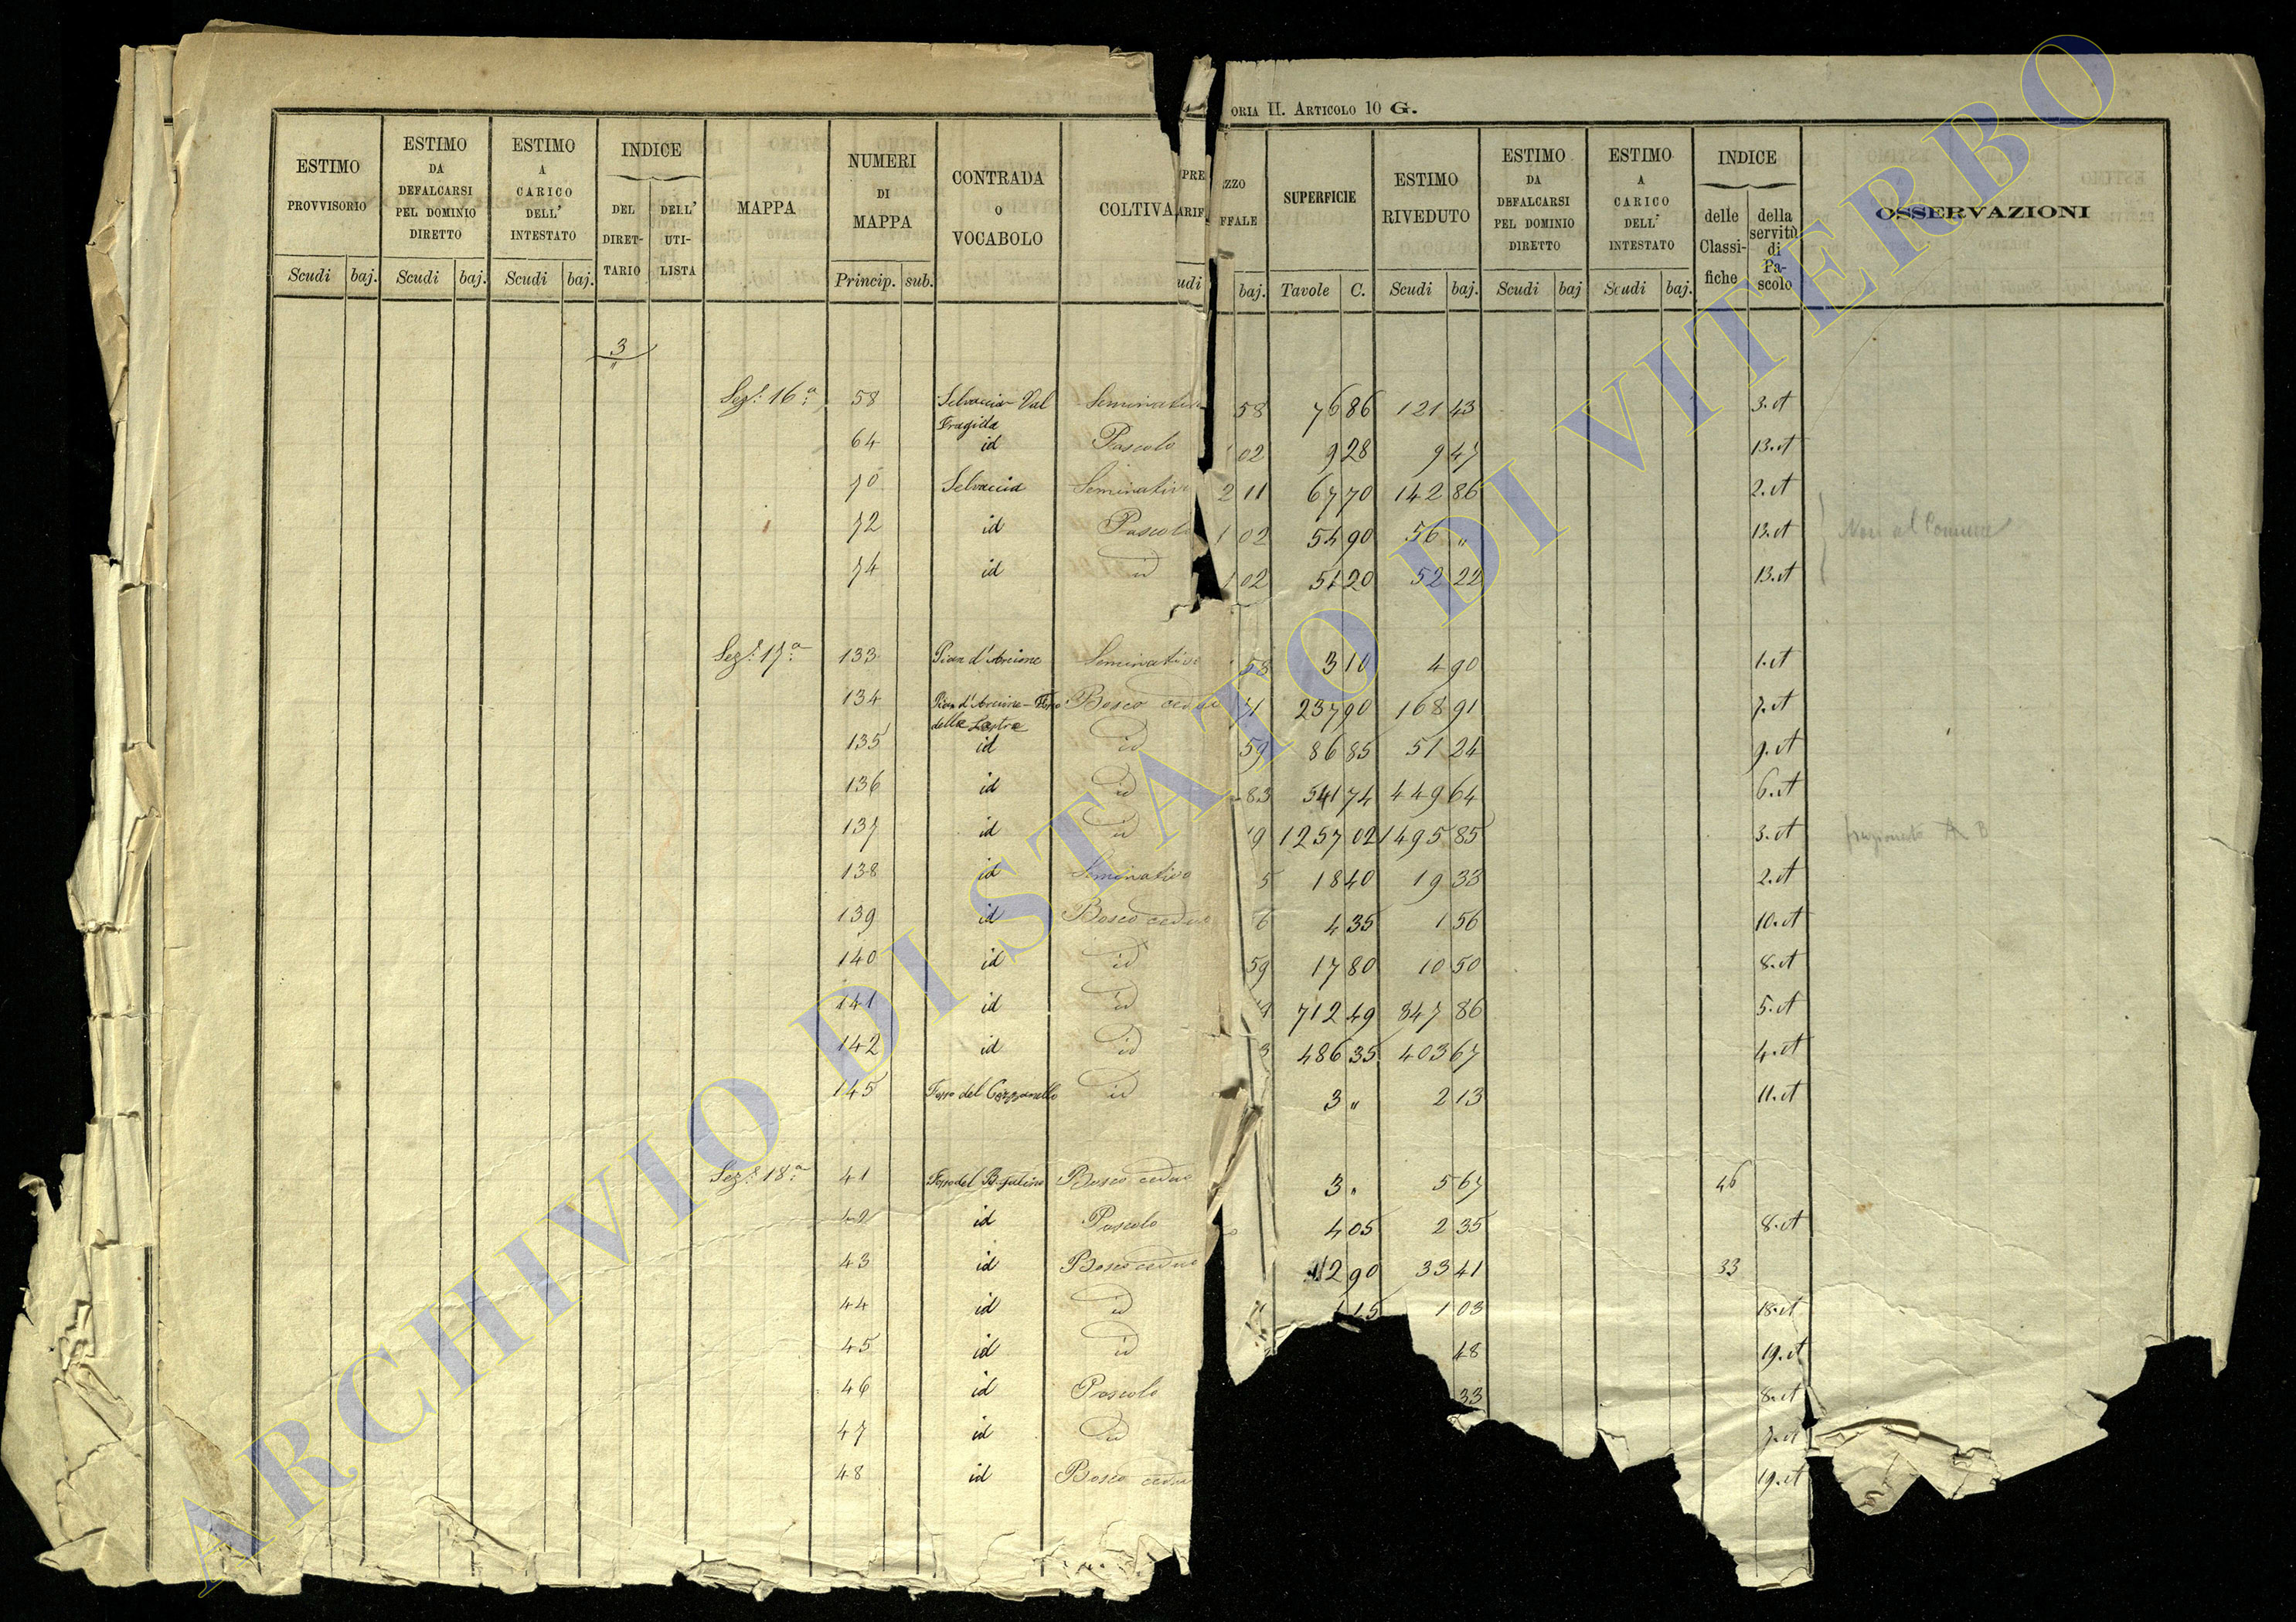 ORIA II. ARTICOLO 10 G.
ESTIMO PROVVISORIO
ESTIMO DA DEFALCARSI PEL DOMINIO DIRETTO
ESTIMO A CARICO DELL' INTESTATO
INDICE
DEL DIRETTARIO
DELL' UTILISTA
MAPPA
NUMERI DI MAPPA
CONTRADA o VOCABOLO
COLTIVA
PRE
ARIF
ZZO
FFALE
SUPERFICIE
ESTIMO RIVEDUTO
ESTIMO DA DEFALCARSI PEL DOMINIO DIRETTO
ESTIMO A CARICO DELL' INTESTATO
INDICE
delle Classifiche
della servitù di Pascolo
OSSERVAZIONI
Scudi baj. Scudi baj. Scudi baj. Princip. sub. udi baj. Tavole C. Scudi baj. Scudi baj Scudi baj.
3
"
Sez.e 16.a 58 Selvaccia - Val Seminativo 58 76 86 121 43 3. et
Fragida
64 id Pascolo 02 9 28 9 47 13. et
70 Selvaccia Seminativo 2 11 67 70 142 86 2. et
72 id Pascolo 1 02 54 90 56 " 13. et Non al Comune
74 id id 1 02 51 20 52 22 13. et
Sez.e 17.a 133 Pian d'Arcione Seminativo 58 3 10 4 90 1. et
134 Pian d'Arcione - Fosso Bosco ceduo 71 237 90 168 91 7. et
della Lastra
135 id id 59 86 85 51 24 9. et
136 id id 83 541 74 449 64 6. et
137 id id 9 1257 02 1495 85 3. et frazionato A B
138 id Seminativo 5 18 40 19 33 2. et
139 id Bosco ceduo 6 4 35 1 56 10. et
140 id id 59 17 80 10 50 8. et
141 id id 9 712 49 847 86 5. et
142 id id 3 486 35 403 67 4. et
145 Fosso del id 3 " 2 13 11. et
Sez.e 18.a 41 Fosso del Bosco ceduo 3 " 5 67 46
42 id Pascolo 4 05 2 35 8. et
43 id Bosco ceduo 12 90 33 41 33
44 id id 1 15 1 03 18. et
45 id id 48 19. et
46 id Pascolo 33 8. et
47 id id 7. et
48 id Bosco ceduo 19. et
ARCHIVIO DI STATO DI VITERBO